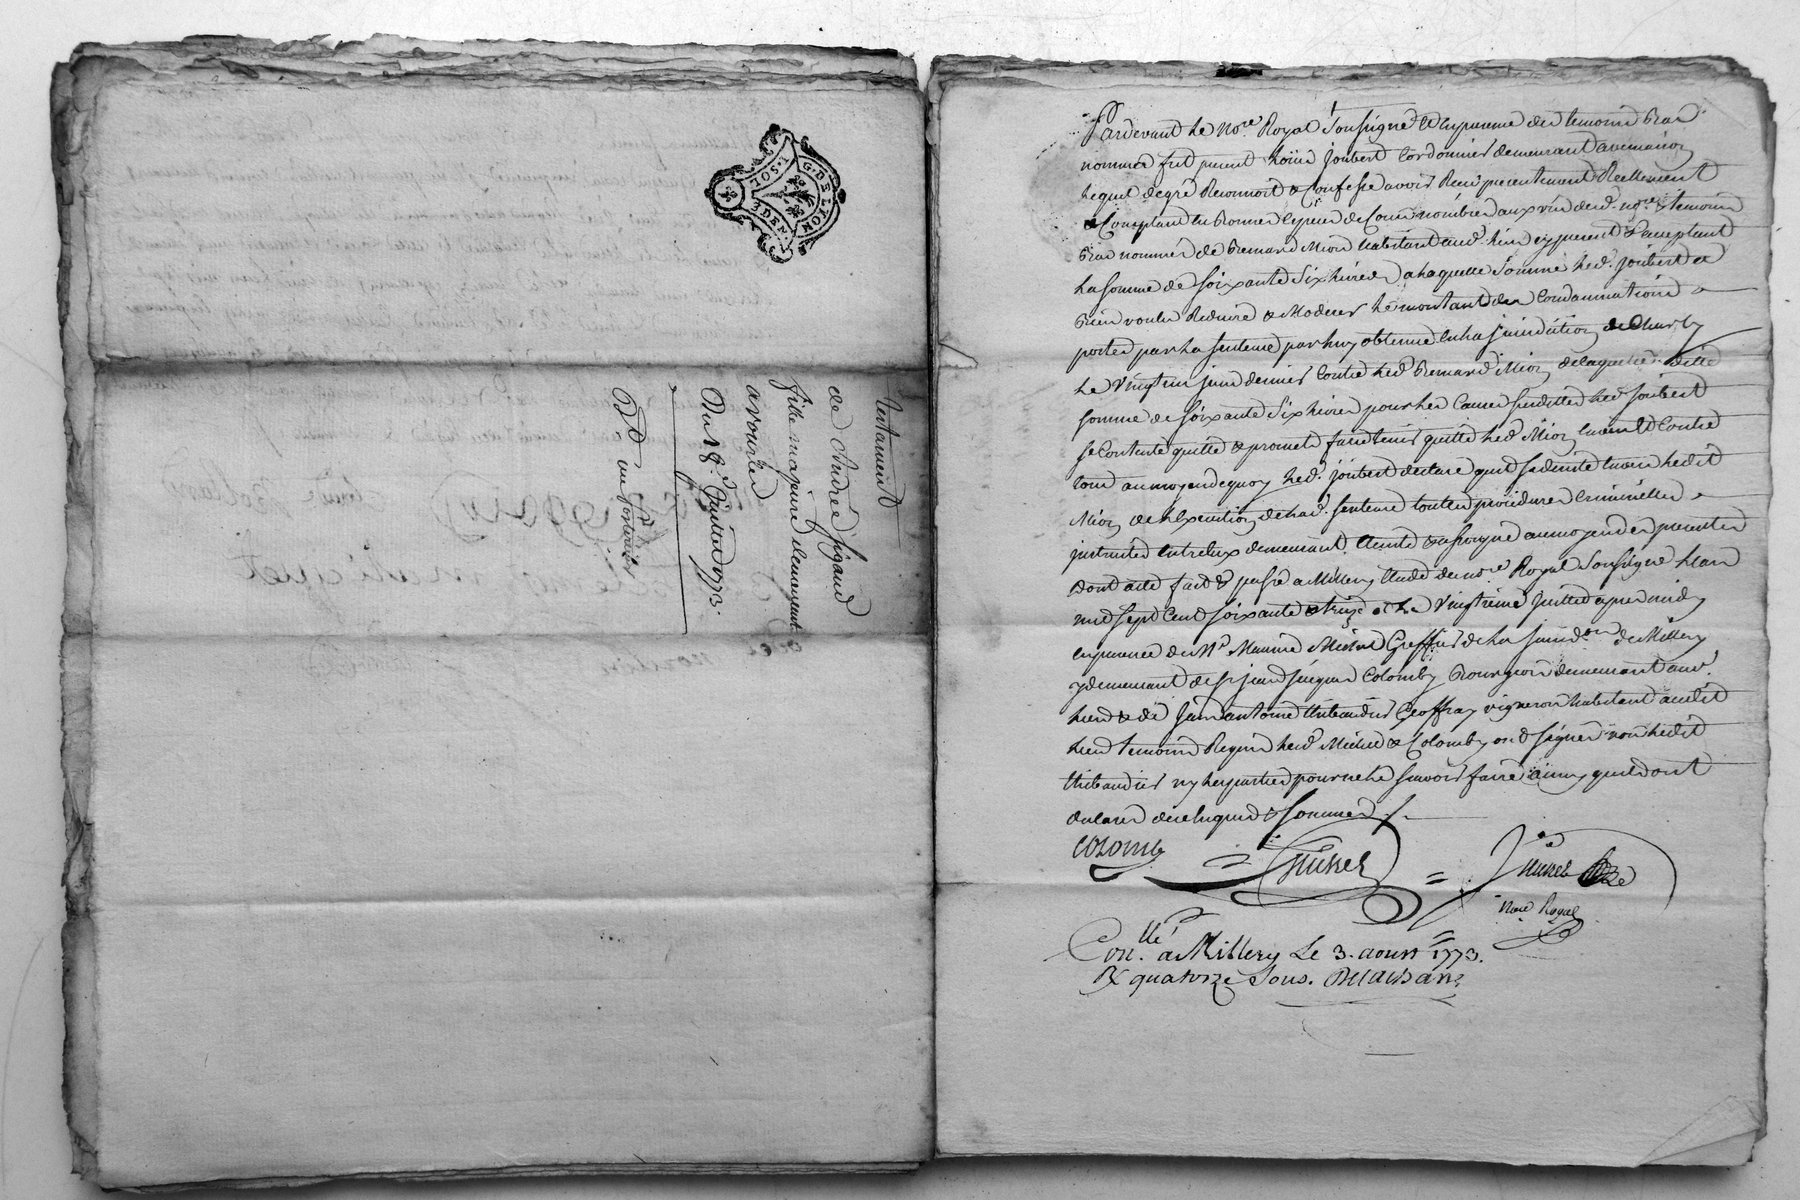 G. DE LYON
1. SOL.
3 DEN.
Testament
de Andrée Sigaud
fille majeure demeurant
a vourles
Du 18e. Juillet 1773.
Pardevant le No.re Royal Soussigné Et En presence des temoins Bas
nommés fut present Loüis Joubert Cordonnier demeurant a
Lequel de gré Reconnoit & Confesse avoir Reçu presentement & Réellement
& Comptant En Bonnes Especes de Cours nombrées aux vûe dud. no.re & temoins
Bas nommés de Bernard Mion habitant aud. Lieu Cy present & acceptant
La somme de soixante Six Livres a Laquelle Somme Led. Joubert a
Bien voulu Reduire & Moderer Le montant des Condamnations
portés par La Sentence par Luy obtenue En La Jurisdiction de Charly
Le Vingt un juin dernier Contre Led. Bernard Mion de laquelle ditte
somme de Soixante Six Livres pour Les Causes Susdittes Led. Joubert
Se Contente quitte & promet faire tenir quitte Led. Mion Envers Et Contre
tous au moyen de quoy Led. Joubert declare quil se desiste Envers Ledit
Mion de L'Execution de Lad. Sentence toutes procedures Criminelles
instruites Entr'eux demeurant Eteinte & assoupie au moyen des presentes
Dont acte fait & passé a Millery Etude du no.re Royal Soussigné L'an
mil sept Cent soixante & treize & Le Vingtieme Juillet apres midy
En presence de M.e Maurice Michel Greffier de La Jurisd.on de Millery
y demeurant de Sr jean jacques Colomby Bourgeois demeurant aud.
Lieu & de Jean antoine thibaudier Geoffray vigneron habitant audit
Lieu temoins Requis Lesd. Michel & Colomby ont Signés non Ledit
thibaudier ny Les parties pour ne Le Sçavoir faire ainsy quils ont
declaré de ce Enquis & Sommés ./.
COLOMBy
Michel
No.re Royal
Con.llé a Millery Le 3. aoust 1773.
R quatorze Sous.